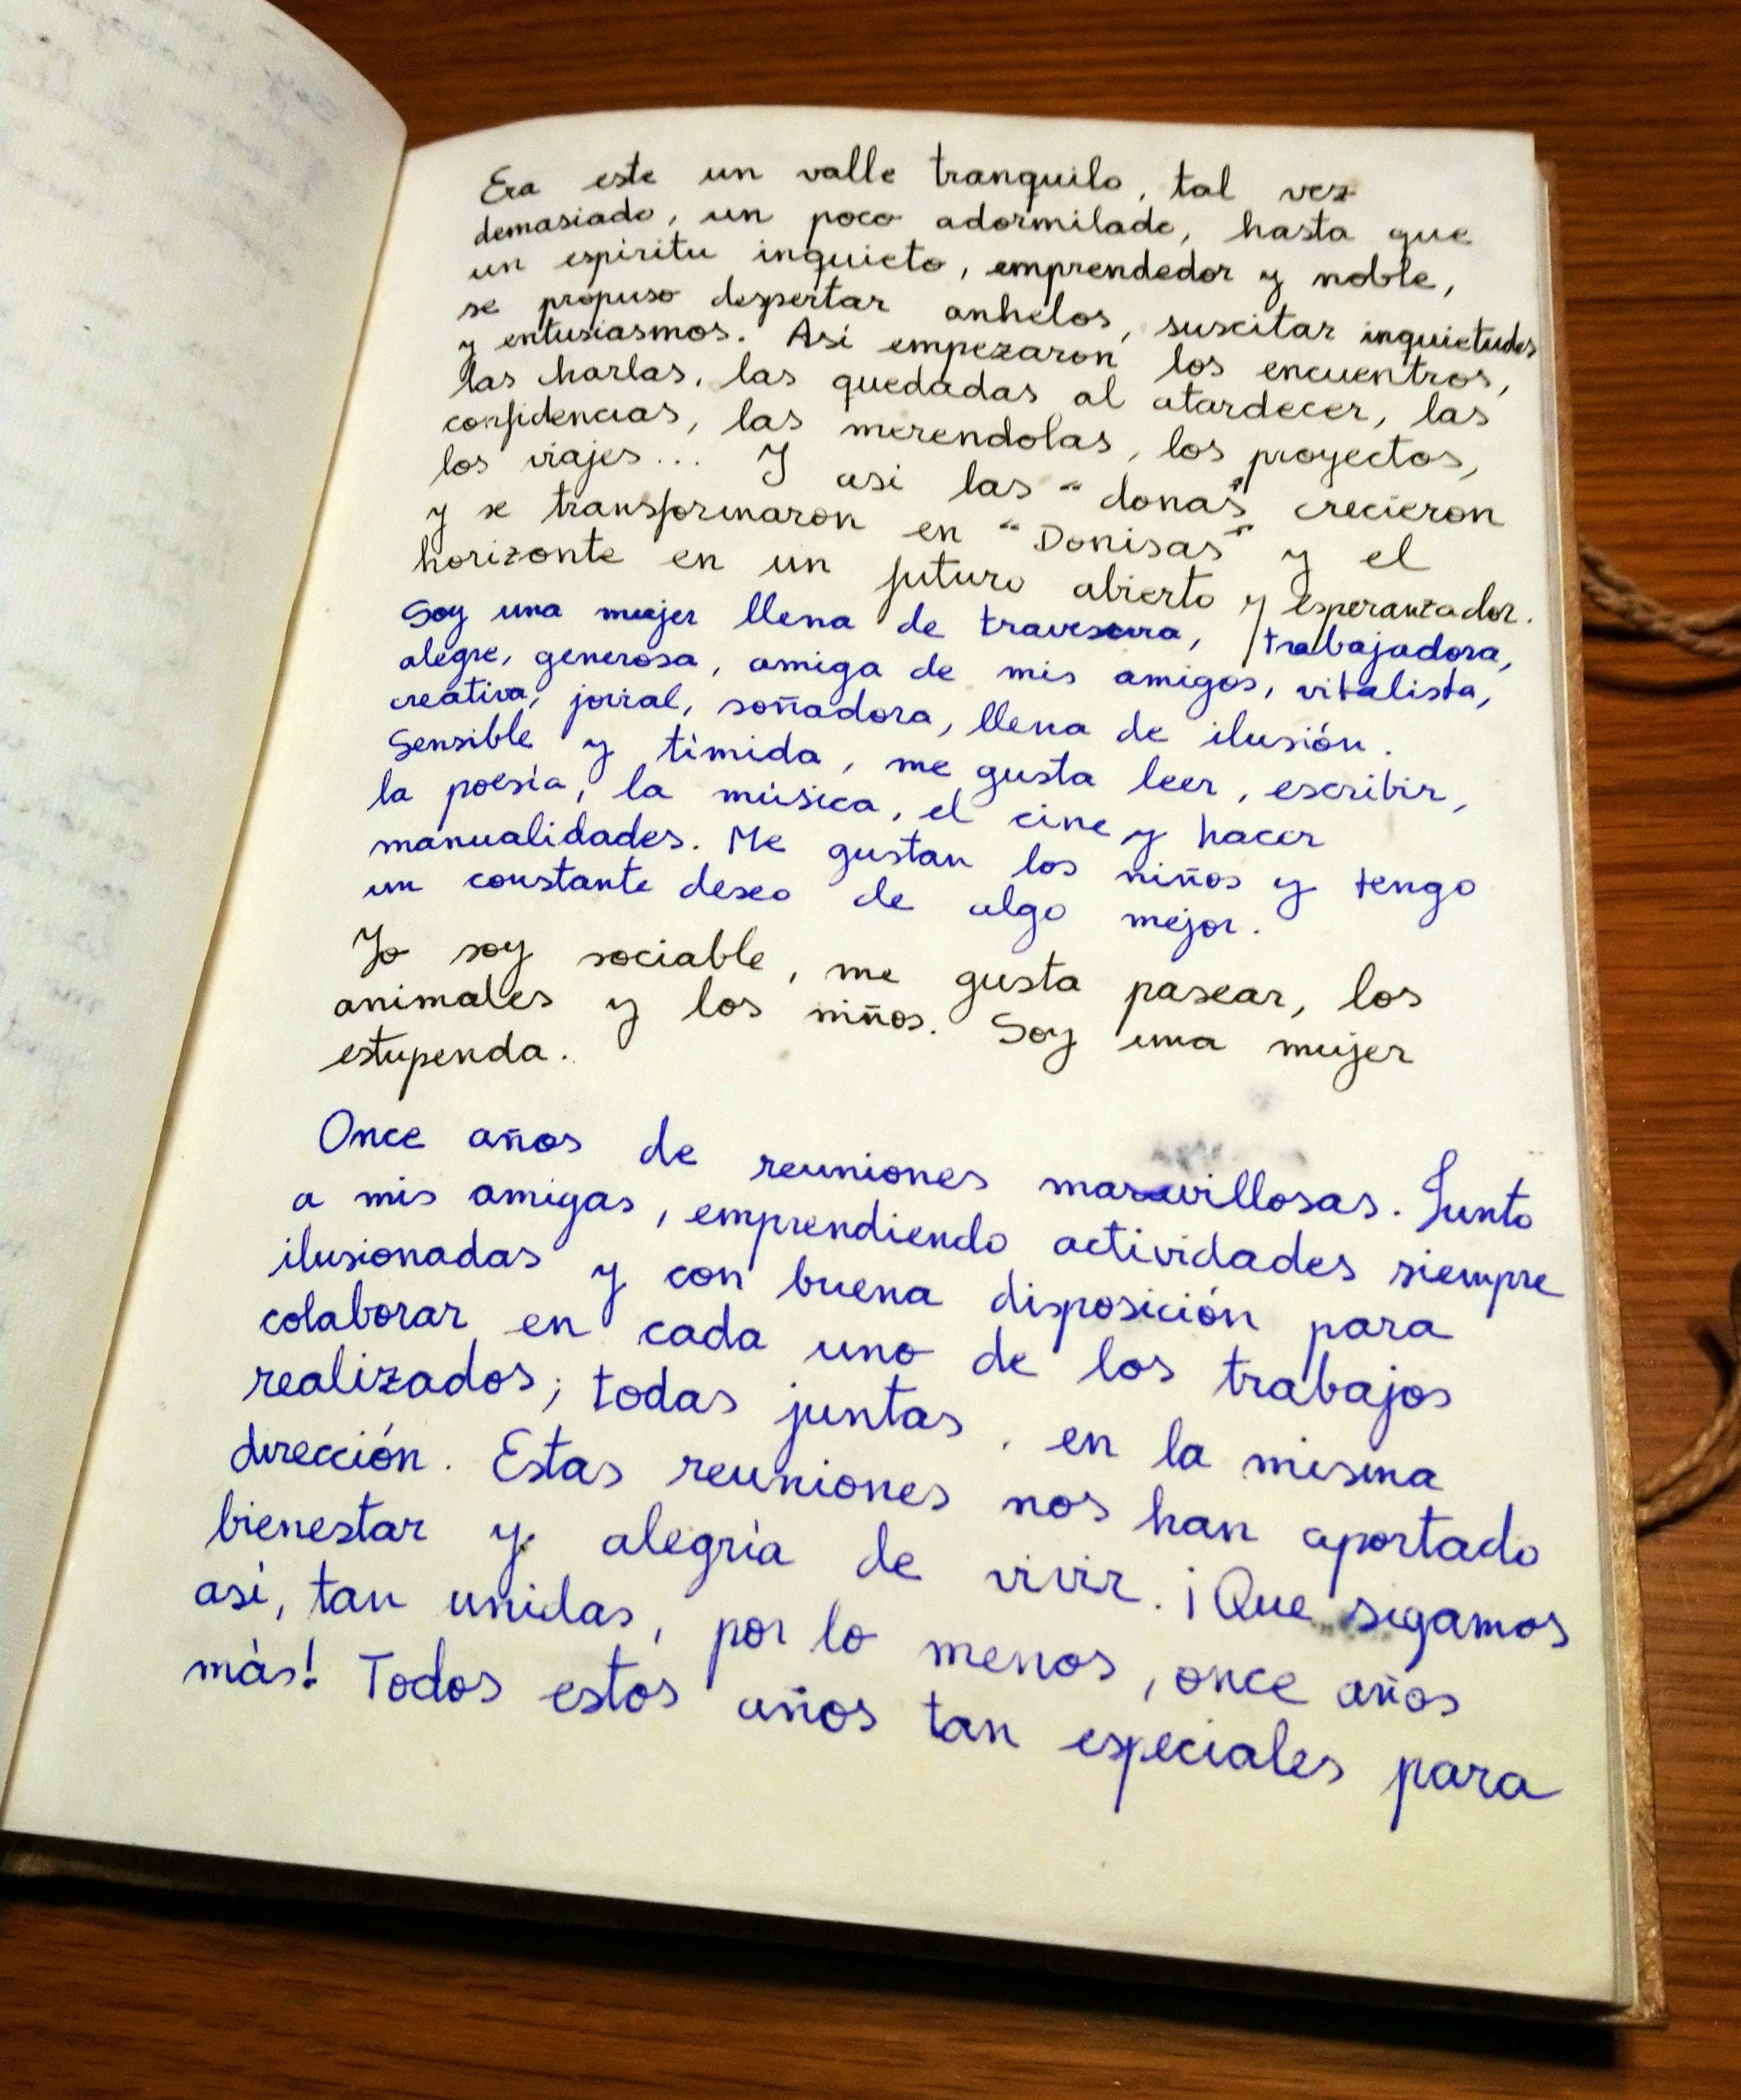 Era este un valle tranquilo, tal vez
demasiado, un poco adormilado, hasta que
un espiritu inquieto, emprendedor y noble,
se propuso despertar anhelos, suscitar inquietudes
y entusiasmos. Asi empezaron los encuentros,
las charlas, las quedadas al atardecer, las
confidencias, las merendolas, los proyectos,
los viajes... Y asi las "donas" crecieron
y se transformaron en "Donisas" y el
horizonte en un futuro abierto y esperanzador.
Soy una mujer llena de travesura, trabajadora,
alegre, generosa, amiga de mis amigos, vitalista,
creativa, jovial, soñadora, llena de ilusión.
Sensible y tímida, me gusta leer, escribir,
la poesía, la música, el cine y hacer
manualidades. Me gustan los niños y tengo
un constante deseo de algo mejor.
Yo soy sociable, me gusta pasear, los
animales y los niños. Soy una mujer
estupenda.
Once años de reuniones maravillosas. Junto
a mis amigas, emprendiendo actividades siempre
ilusionadas y con buena disposición para
colaborar en cada uno de los trabajos
realizados; todas juntas, en la misma
dirección. Estas reuniones nos han aportado
bienestar y alegría de vivir. ¡Que sigamos
así, tan unidas, por lo menos, once años
más! Todos estos años tan especiales para